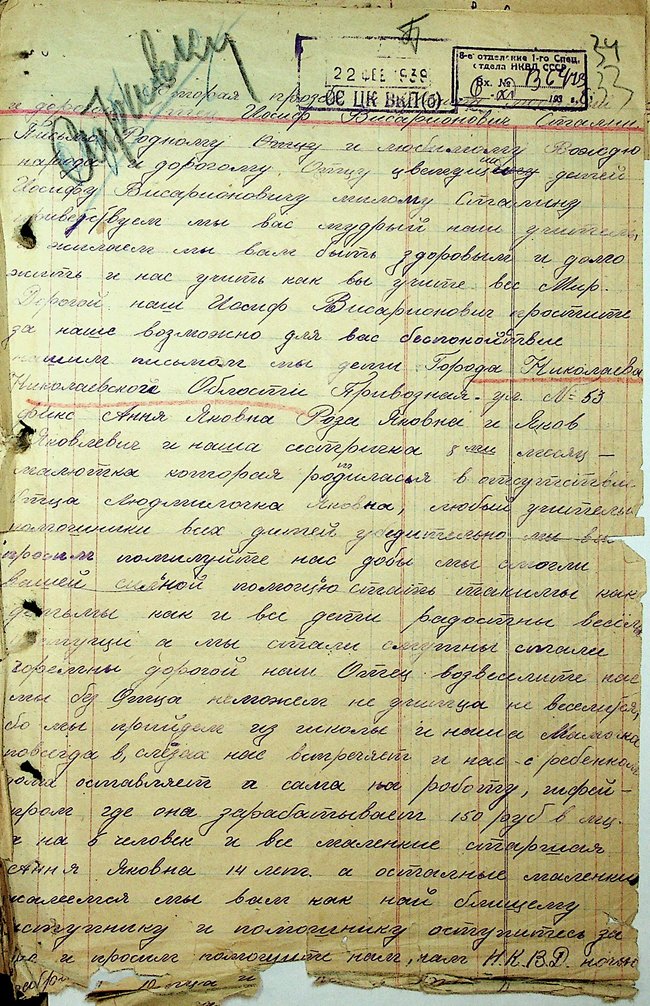 34
33
22 ФЕВ 1939
ОС ЦК ВКП(б)
8-е отделение 1-го Спец.
отдела НКВД СССР
Вх. №
193 г.
вторая
и дорогой Иосиф Висарионович Сталин
Письмо Родному Отцу и любимому Вождю
народа и дорогому Отцу детей
Иосифу Висарионовичу милому Сталину
приветствуем мы вас мудрый наш учитель,
желаем мы вам быть здоровым и долго
жить и нас учить как вы учите вес Мир.
Дорогой наш Иосиф Висарионович простите
за наше возможно для вас беспокойствие
нашим письмом мы дети Города Николаева
Николаевской Области Привозная ул. № 53
фикс Ання Яковна Роза Яковна и Яков
Яковлевич и наша систричка 8 ми месяц-
малютка которая родилася в отсутствии
Отца Людмилочка Яковна, любый учитель
помошники всех дитей убедительно мы вы
просим помилуйте нас добы мы смогли
вашей силной помощю стать такимы как
детьмы как и все дети радостны весёлы
а мы стали смутны стали
дорогой наш Отец возвеселите нас
мы без Отца неможем не учитца не веселится,
бо мы прийдем из школы и наша Мамочка
повсегда в слёзах нас встречяет и нас с ребёнком
дома оставляет а сама на роботу, швей-
пром где она зарабатывает 150 руб в мц.
а на 5 человек и все маленкие старшая
Ання Яковна 14 лет. а осталные маленки
жалеемся мы вам как най блищему
заступнику и помошнику оступитесь за
и просим помогите нам, нам Н.К.В.Д. ночью